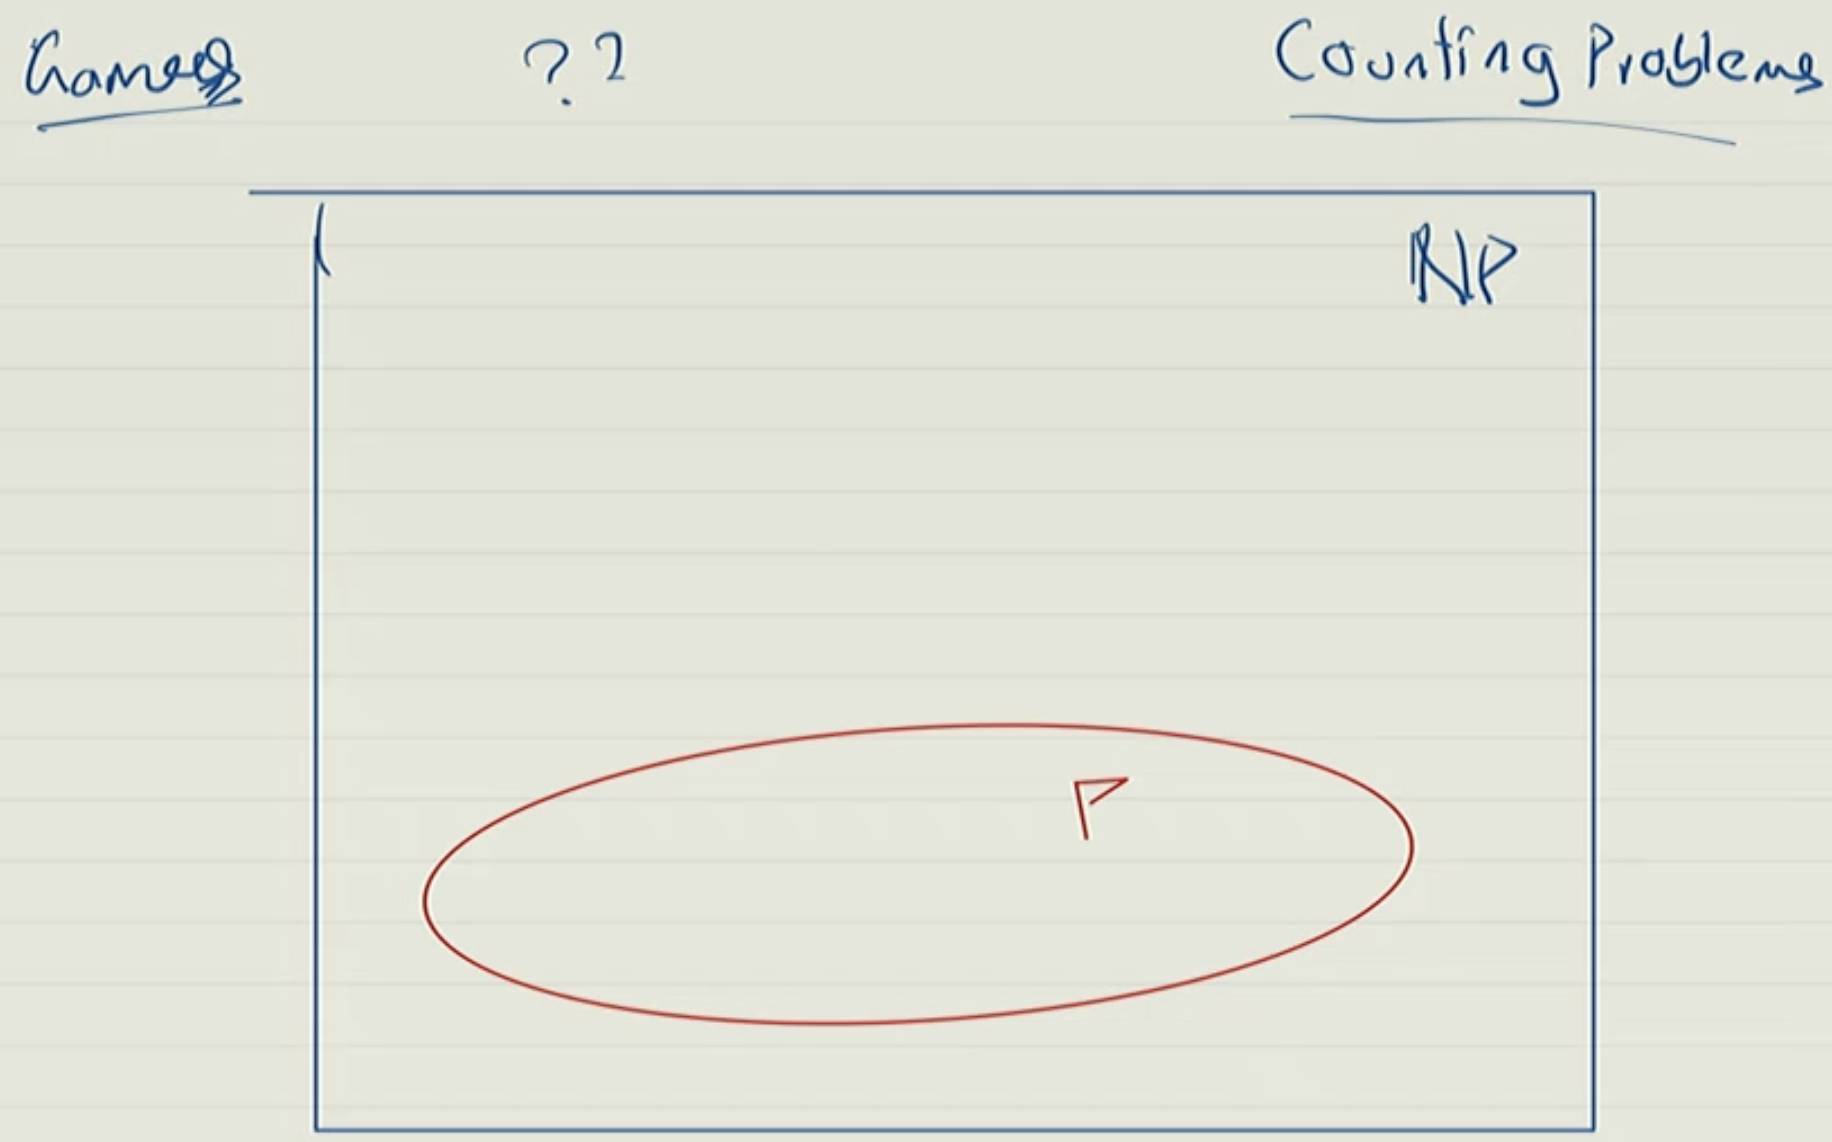 Games ?? Counting Problems
NP
P